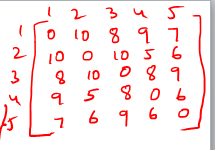 1 2 3 4 5
1 0 10 8 9 7
2 10 0 10 5 6
3 8 10 0 8 9
4 9 5 8 0 6
5 7 6 9 6 0